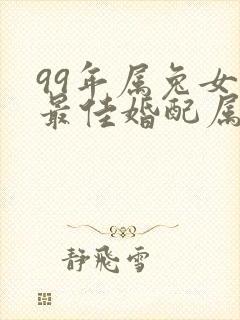 99年属兔女
最佳婚配属
静飛雪